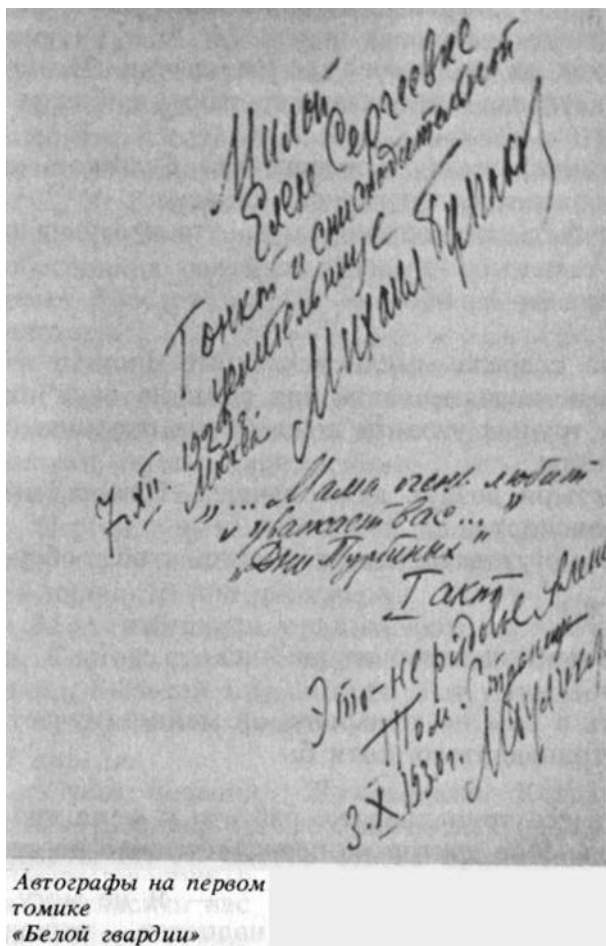 Милой
Елене Сергеевне
Тонкой и снисходительной
ценительнице
Михаил Булгаков
7.XII. 1929 г.
Москва
„... Мама очень любит
и уважает вас..."
„Дни Турбиных"
I акт
Это не
М. Булгаков
3.X.1930 г.
Автографы на первом
томике
«Белой гвардии»